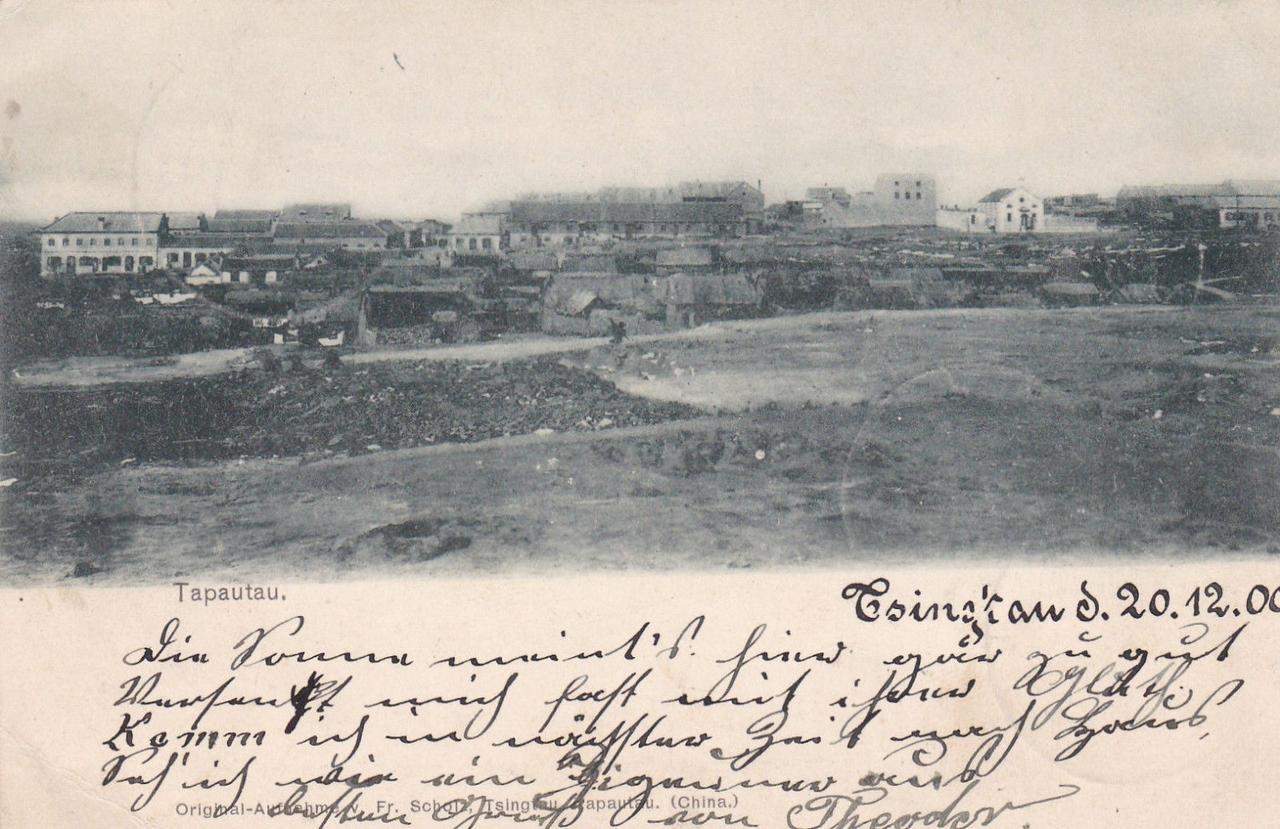 Tapautau.
Tsingtau d. 20.12.00
Die Sonne meint's hier gar zu gut
Versenkt mich fast mit ihrer Gluth
Komm ich in nächster Zeit nach Haus,
Seh' ich wie ein Zigeuner aus
Besten Gruß von Theodor.
Original-Aufnahme v. Fr. Scholz, Tsingtau, Tapautau. (China.)